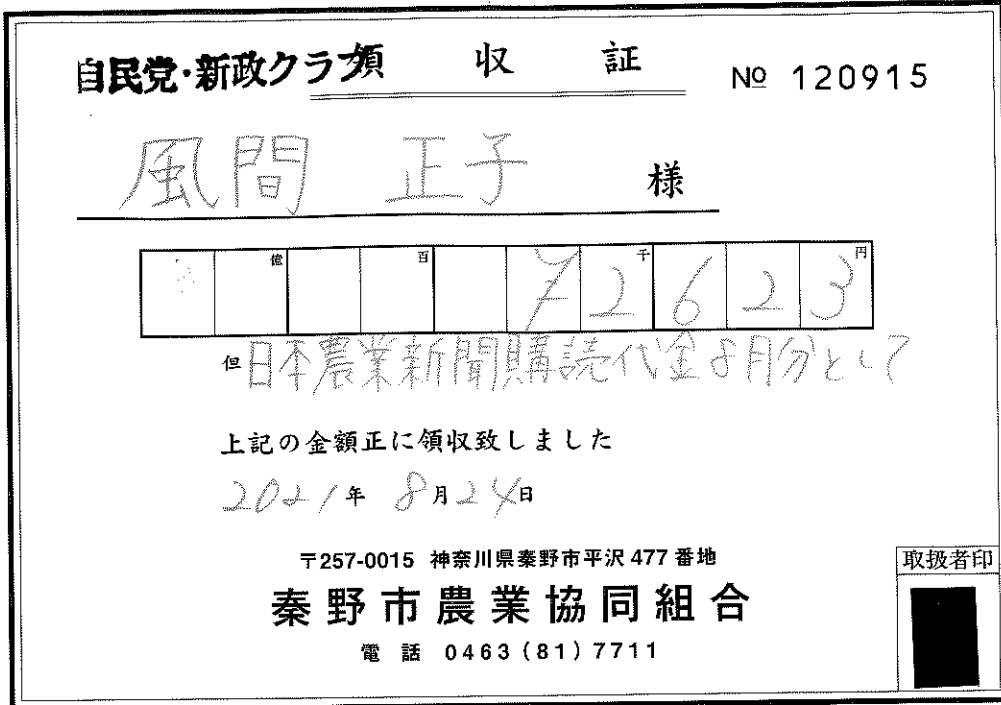 自民党・新政クラブ
領収証
№ 120915
風間 正子 様
億 百 千 円
¥2623
但 日本農業新聞購読代金8月分として
上記の金額正に領収致しました
2021年 8月24日
〒257-0015 神奈川県秦野市平沢 477 番地
秦野市農業協同組合
電話 0463 (81) 7711
取扱者印